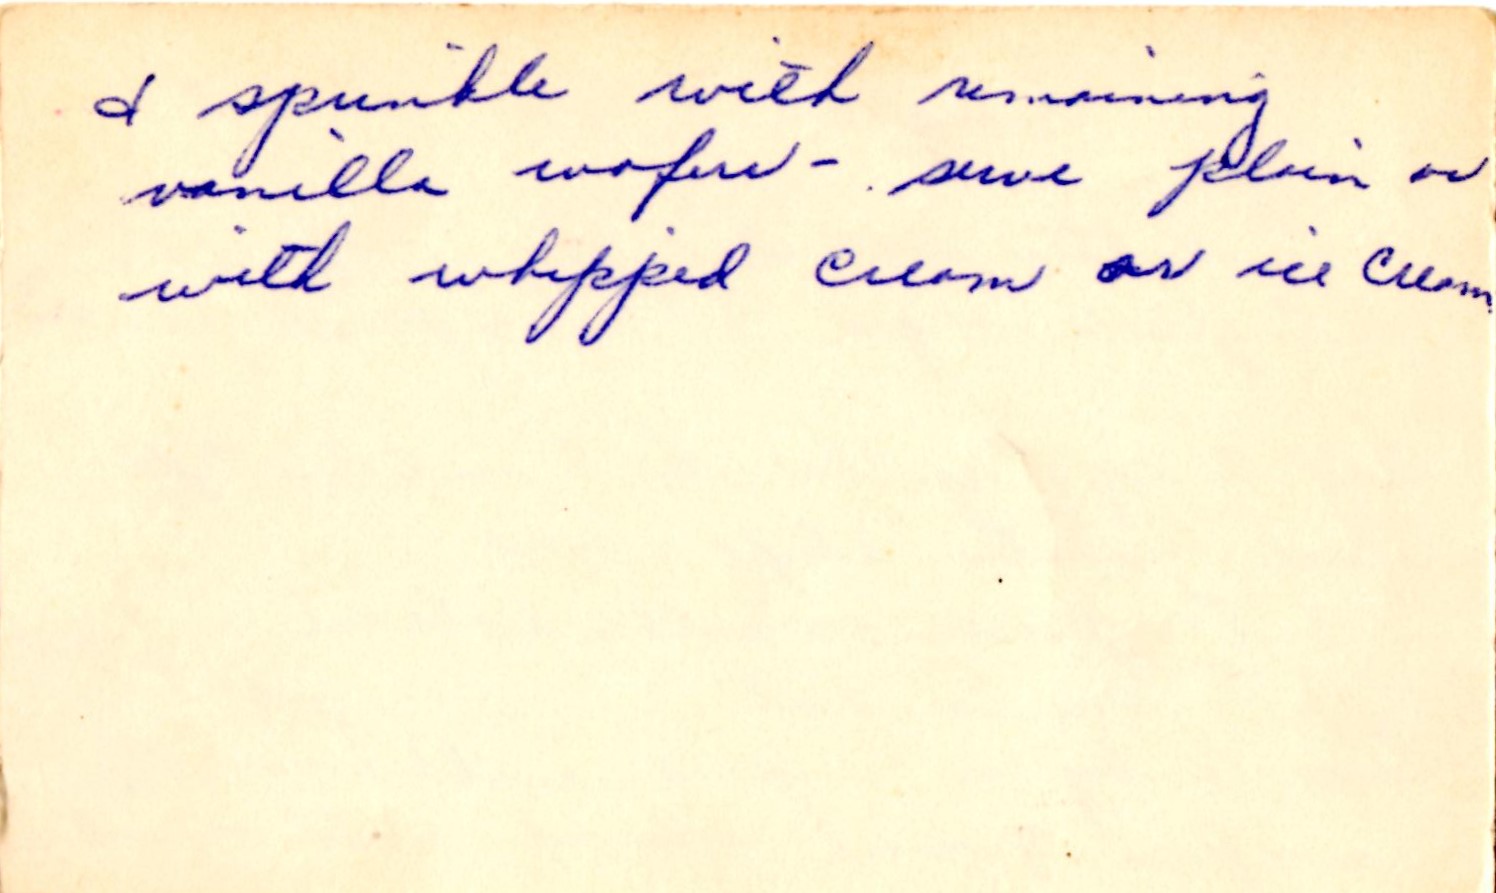 & sprinkle with remaining
vanilla wafers - serve plain or
with whipped cream or ice cream